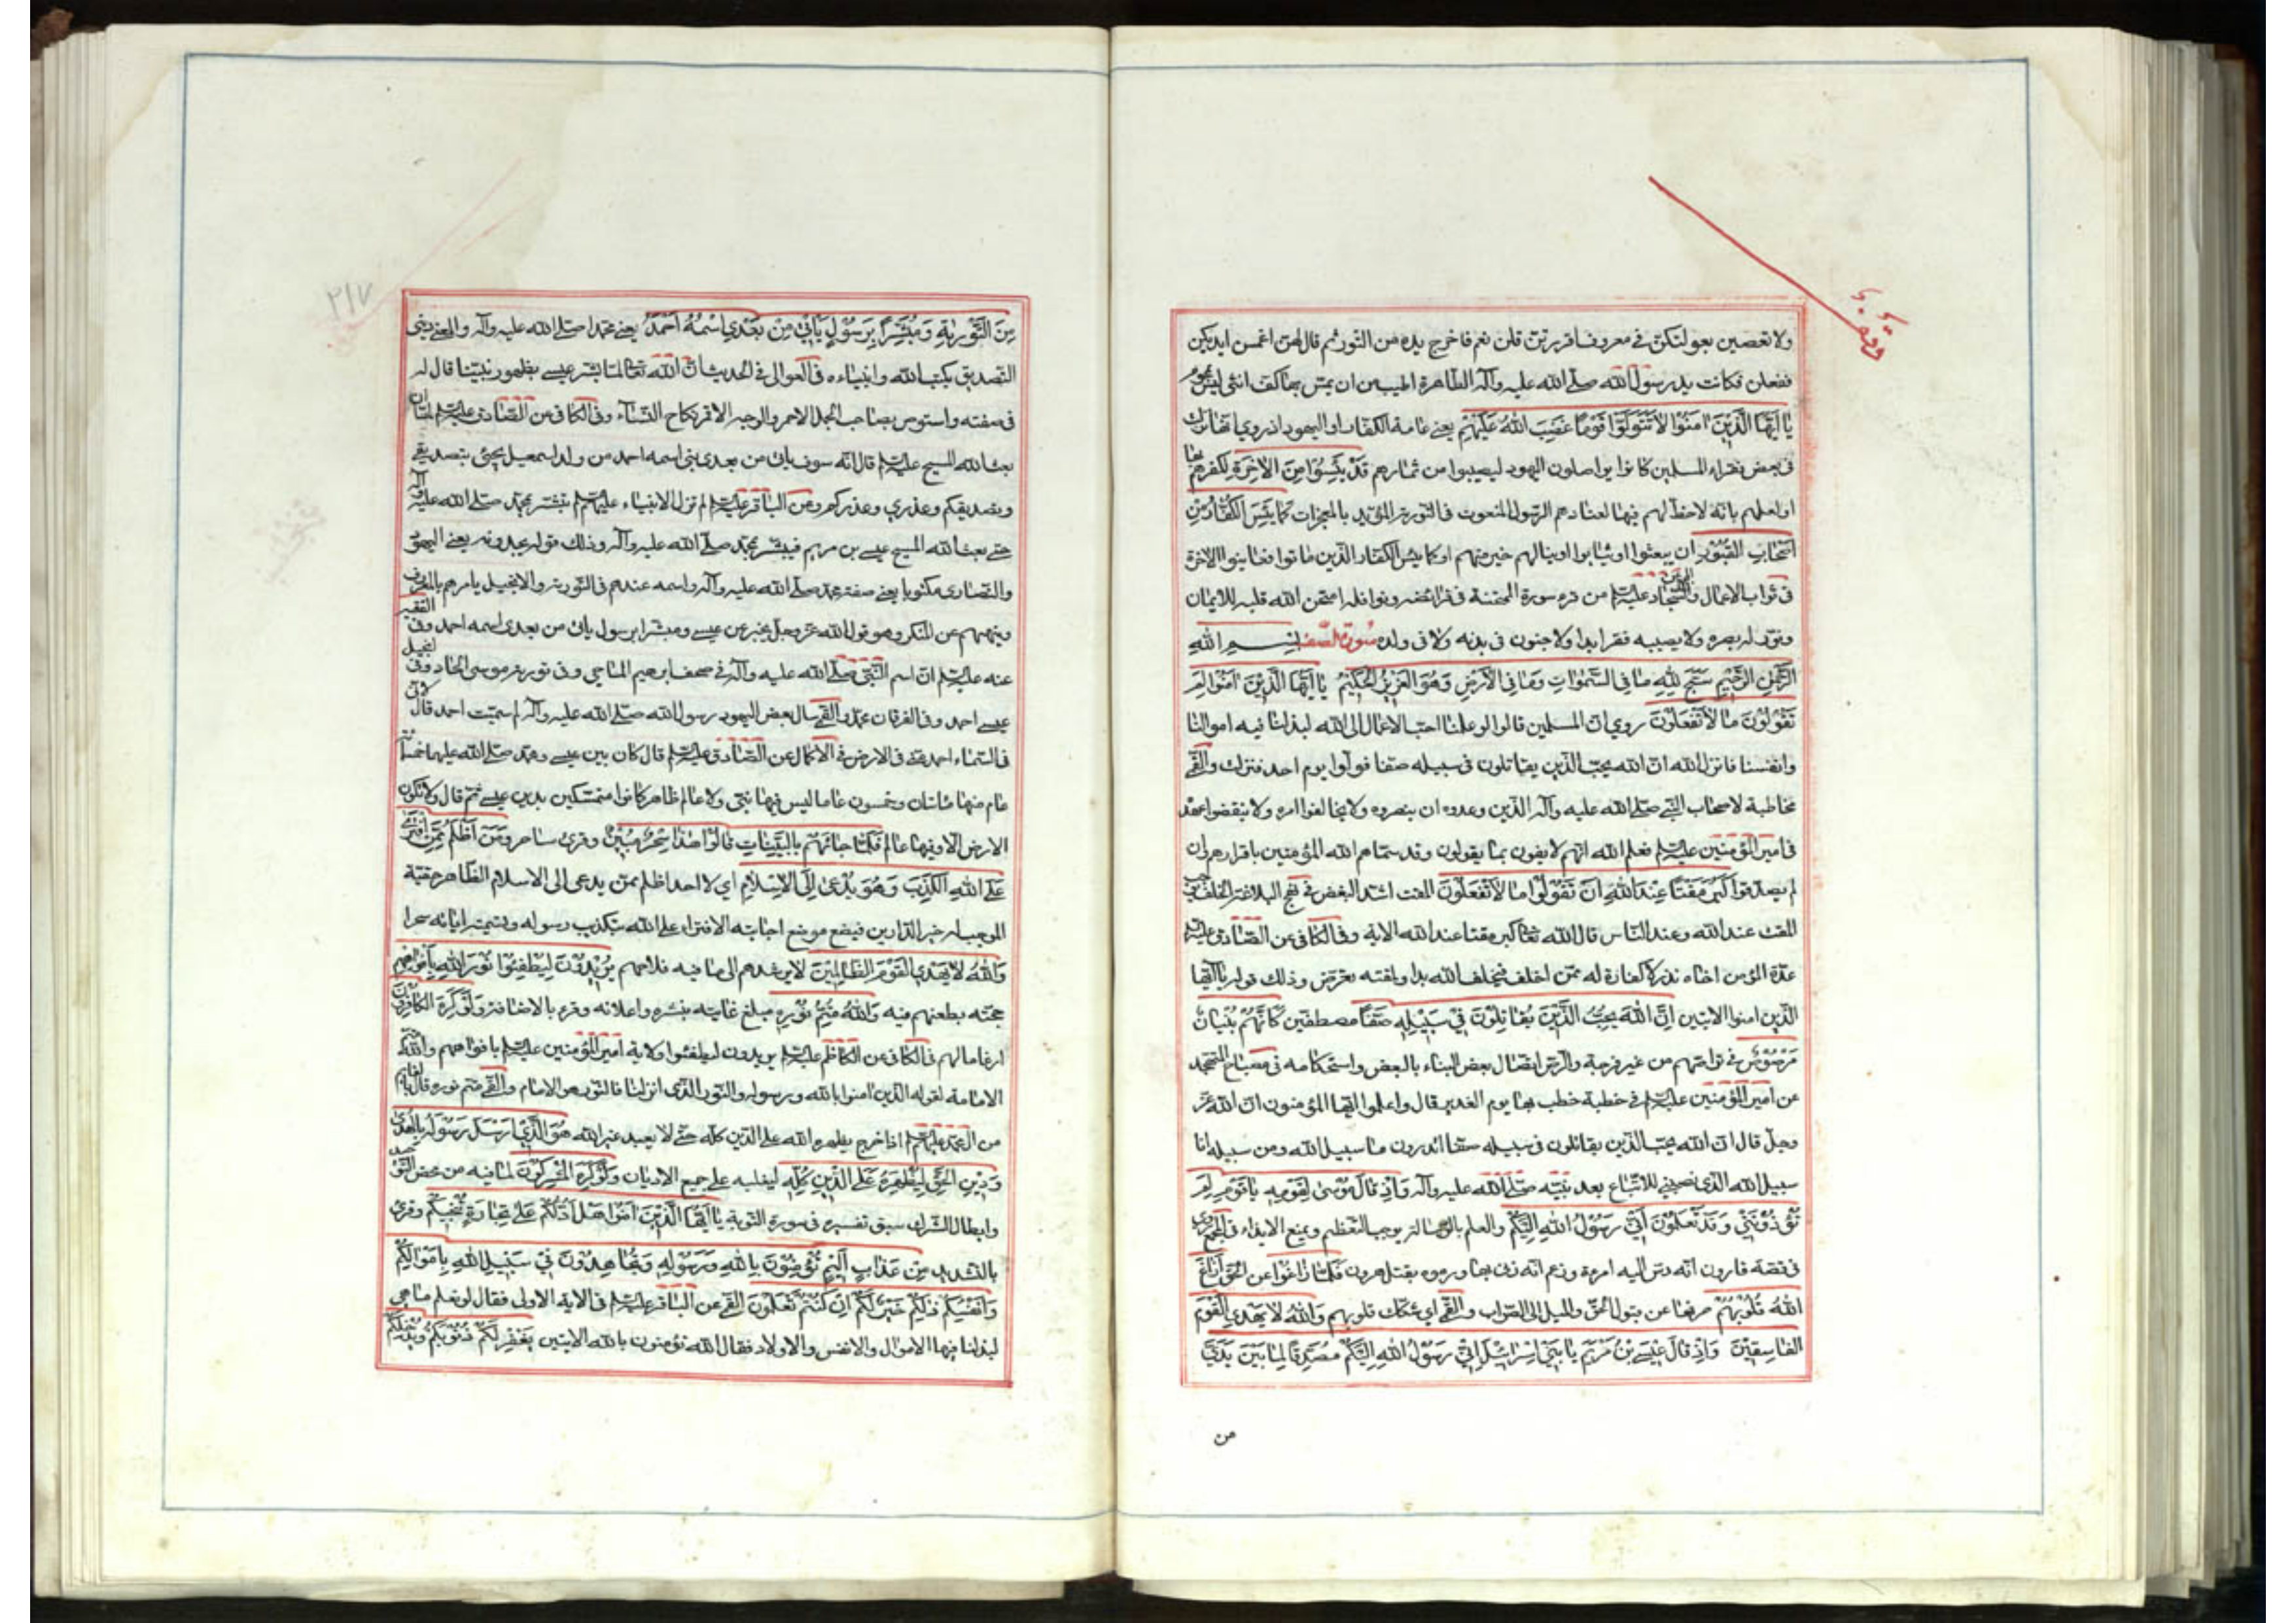 وقف
ولا تعصين بعولتكن في معروف اقررتن قلن نعم فاخرج يده من التور ثم قال لهن اغمسن ايديكن
ففعلن فكانت يد رسول الله صلى الله عليه وآله الطاهرة اطيب من ان يمس بها كف انثى ليس بمحرم
يَا أَيُّهَا الَّذِينَ آمَنُوا لَا تَتَوَلَّوْا قَوْمًا غَضِبَ اللهُ عَلَيْهِمْ يعني عامة الكفار او اليهود اذ روي انها نزلت
في بعض فقراء المسلمين كانوا يواصلون اليهود ليصيبوا من ثمارهم قَدْ يَئِسُوا مِنَ الْآخِرَةِ لكفرهم بها
او لعلمهم بانه لاحظ لهم فيها لعنادهم الرسول المنعوت في التورية المؤيد بالمعجزات كَمَا يَئِسَ الْكُفَّارُ مِنْ
أَصْحَابِ الْقُبُورِ ان يبعثوا او يثابوا او ينالهم خير منهم او كما يئس الكفار الذين ماتوا فعاينوا الاخرة
في ثواب الاعمال والمجمع عن السجاد عليه السلام من قرء سورة الممتحنة في فرائضه ونوافله امتحن الله قلبه للايمان
ونور له بصره ولا يصيبه فقر ابدا ولا جنون في بدنه ولا في ولده سورة الصف بِسْمِ اللهِ
الرَّحْمٰنِ الرَّحِيمِ سَبَّحَ لِلهِ مَا فِي السَّمٰوَاتِ وَمَا فِي الْأَرْضِ وَهُوَ الْعَزِيزُ الْحَكِيمُ يَا أَيُّهَا الَّذِينَ آمَنُوا لِمَ
تَقُولُونَ مَا لَا تَفْعَلُونَ روي ان المسلمين قالوا لو علمنا احب الاعمال الى الله لبذلنا فيه اموالنا
وانفسنا فانزل الله ان الله يحب الذين يقاتلون في سبيله صفا فولوا يوم احد فنزلت والقمي
مخاطبة لاصحاب النبي صلى الله عليه وآله الذين وعدوه ان ينصروه ولا يخالفوا امره ولا ينقضوا عهده
في امير المؤمنين عليه السلام فعلم الله انهم لا يفون بما يقولون وقد سماهم الله المؤمنين باقرارهم وان
لم يصدقوا كَبُرَ مَقْتًا عِنْدَ اللهِ أَنْ تَقُولُوا مَا لَا تَفْعَلُونَ المقت اشد البغض في نهج البلاغة الخلف يوجب
المقت عند الله وعند الناس قال الله تعالى كبر مقتا عند الله الاية وفي الكافي عن الصادق عليه السلام
عدة المؤمن اخاه نذر لا كفارة له فمن اخلف فبخلف الله بدا ولمقته تعرض وذلك قوله يا ايها
الذين امنوا الايتين إِنَّ اللهَ يُحِبُّ الَّذِينَ يُقَاتِلُونَ فِي سَبِيلِهِ صَفًّا مصطفين كَأَنَّهُمْ بُنْيَانٌ
مَرْصُوصٌ في تراصهم من غير فرجة والرص اتصال بعض البناء بالبعض واستحكامه في مصباح المتهجد
عن امير المؤمنين عليه السلام في خطبة خطب بها يوم الغدير قال واعلموا ايها المؤمنون ان الله عز
وجل قال ان الله يحب الذين يقاتلون في سبيله صفا اتدرون ما سبيل الله ومن سبيله انا
سبيل الله الذي نصبني للاتباع بعد نبيه صلى الله عليه وآله وَإِذْ قَالَ مُوسَى لِقَوْمِهِ يَا قَوْمِ لِمَ
تُؤْذُونَنِي وَقَدْ تَعْلَمُونَ أَنِّي رَسُولُ اللهِ إِلَيْكُمْ والعلم بالرسالة يوجب التعظيم ويمنع الايذاء في المجمع روي
في قصة قارون انه دس اليه امرءة وزعم انه زنى بها ورموه بقتل هرون فَلَمَّا زَاغُوا عن الحق أَزَاغَ
اللهُ قُلُوبَهُمْ صرفها عن قبول الحق والميل الى الصواب والقمي اي شكك قلوبهم وَاللهُ لَا يَهْدِي الْقَوْمَ
الْفَاسِقِينَ وَإِذْ قَالَ عِيسَى بْنُ مَرْيَمَ يَا بَنِي إِسْرَائِيلَ إِنِّي رَسُولُ اللهِ إِلَيْكُمْ مُصَدِّقًا لِمَا بَيْنَ يَدَيَّ
من
٢١٧
مِنَ التَّوْرٰيةِ وَمُبَشِّرًا بِرَسُولٍ يَأْتِي مِنْ بَعْدِي اسْمُهُ أَحْمَدُ يعني محمدا صلى الله عليه وآله والمعنى ديني
التصديق بكتب الله وانبياءه في العوالي في الحديث ان الله تعالى لما بشر عيسى بظهور نبينا قال له
في صفته واستوص بصاحب الجمل الاحمر والوجه الاقمر نكاح النساء وفي الكافي عن الصادق عليه السلام لما ان
بعث الله المسيح عليه السلام قال انه سوف ياتي من بعدي نبي اسمه احمد من ولد اسمعيل يجيئ بتصديقي
وتصديقكم وعذري وعذركم وعن الباقر عليه السلام لم تزل الانبياء عليهم السلام تبشر بمحمد صلى الله عليه وآله
حتى بعث الله المسيح عيسى بن مريم فبشر بمحمد صلى الله عليه وآله وذلك قوله يجدونه يعني اليهود
والنصارى مكتوبا يعني صفة محمد صلى الله عليه وآله واسمه عندهم في التورية والانجيل يامرهم بالمعروف
وينهيهم عن المنكر وهو قول الله عز وجل يخبر عن عيسى ومبشرا برسول ياتي من بعدي اسمه احمد وفي الفقيه
عنه عليه السلام ان اسم النبي صلى الله عليه وآله في صحف ابرهيم الماحي وفي تورية موسى الحاد وفي انجيل
عيسى احمد وفي الفرقان محمد والقمي سال بعض اليهود رسول الله صلى الله عليه وآله لم سميت احمد قال لاني
في السماء احمد منه في الارض في الاكمال عن الصادق عليه السلام قال كان بين عيسى ومحمد صلى الله عليهما خمسمائة
عام منها مائتان وخمسون عاما ليس فيها نبي ولا عالم ظاهر كانوا متمسكين بدين عيسى ثم قال ولا تكون
الارض الا وفيها عالم فَلَمَّا جَاءَهُمْ بِالْبَيِّنَاتِ قَالُوا هٰذَا سِحْرٌ مُبِينٌ وقرئ ساحر وَمَنْ أَظْلَمُ مِمَّنِ افْتَرَى
عَلَى اللهِ الْكَذِبَ وَهُوَ يُدْعَى إِلَى الْإِسْلَامِ اي لا احد اظلم ممن يدعى الى الاسلام الظاهر حقيته
الموجب له خير الدارين فيضع موضع اجابته الافتراء على الله بتكذيب رسوله وتسميته اياته سحرا
وَاللهُ لَا يَهْدِي الْقَوْمَ الظَّالِمِينَ لا يرشدهم الى ما فيه فلاحهم يُرِيدُونَ لِيُطْفِئُوا نُورَ اللهِ بِأَفْوَاهِهِمْ
حجته بطعنهم فيه وَاللهُ مُتِمُّ نُورِهِ مبلغ غايته بنشره واعلانه وقرء بالاضافة وَلَوْ كَرِهَ الْكَافِرُونَ
ارغاما لهم في الكافي عن الكاظم عليه السلام يريدون ليطفئوا ولاية امير المؤمنين عليه السلام بافواههم والله متم
الامامة لقوله الذين امنوا بالله ورسوله والنور الذي انزلنا فالنور هو الامام والقمي متم نوره قال بالقائم
من ال محمد عليهم السلام اذا خرج يظهره الله على الدين كله حتى لا يعبد غير الله هُوَ الَّذِي أَرْسَلَ رَسُولَهُ بِالْهُدَى
وَدِينِ الْحَقِّ لِيُظْهِرَهُ عَلَى الدِّينِ كُلِّهِ ليغلبه على جميع الاديان وَلَوْ كَرِهَ الْمُشْرِكُونَ لما فيه من محض التوحيد
وابطال الشرك سبق تفسيره في سورة التوبة يَا أَيُّهَا الَّذِينَ آمَنُوا هَلْ أَدُلُّكُمْ عَلَى تِجَارَةٍ تُنْجِيكُمْ وقرئ
بالتشديد مِنْ عَذَابٍ أَلِيمٍ تُؤْمِنُونَ بِاللهِ وَرَسُولِهِ وَتُجَاهِدُونَ فِي سَبِيلِ اللهِ بِأَمْوَالِكُمْ
وَأَنْفُسِكُمْ ذٰلِكُمْ خَيْرٌ لَكُمْ إِنْ كُنْتُمْ تَعْلَمُونَ القمي عن الباقر عليه السلام في الاية الاولى فقال لو نعلم ما هي
لبذلنا فيها الاموال والانفس والاولاد فقال الله تؤمنون بالله الايتين يَغْفِرْ لَكُمْ ذُنُوبَكُمْ وَيُدْخِلْكُمْ